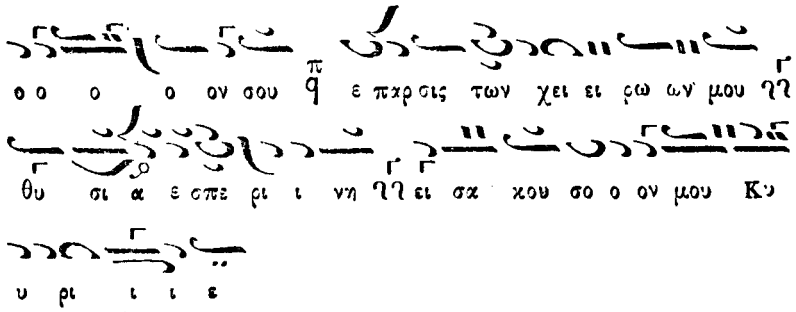 ο ο ο ο ον σου π q ε παρ σις των χει ει ρω ων μου
θυ σι α ε σπε ρι ι νη ει σα κου σο ο ον μου Κυ
υ ρι ι ι ε